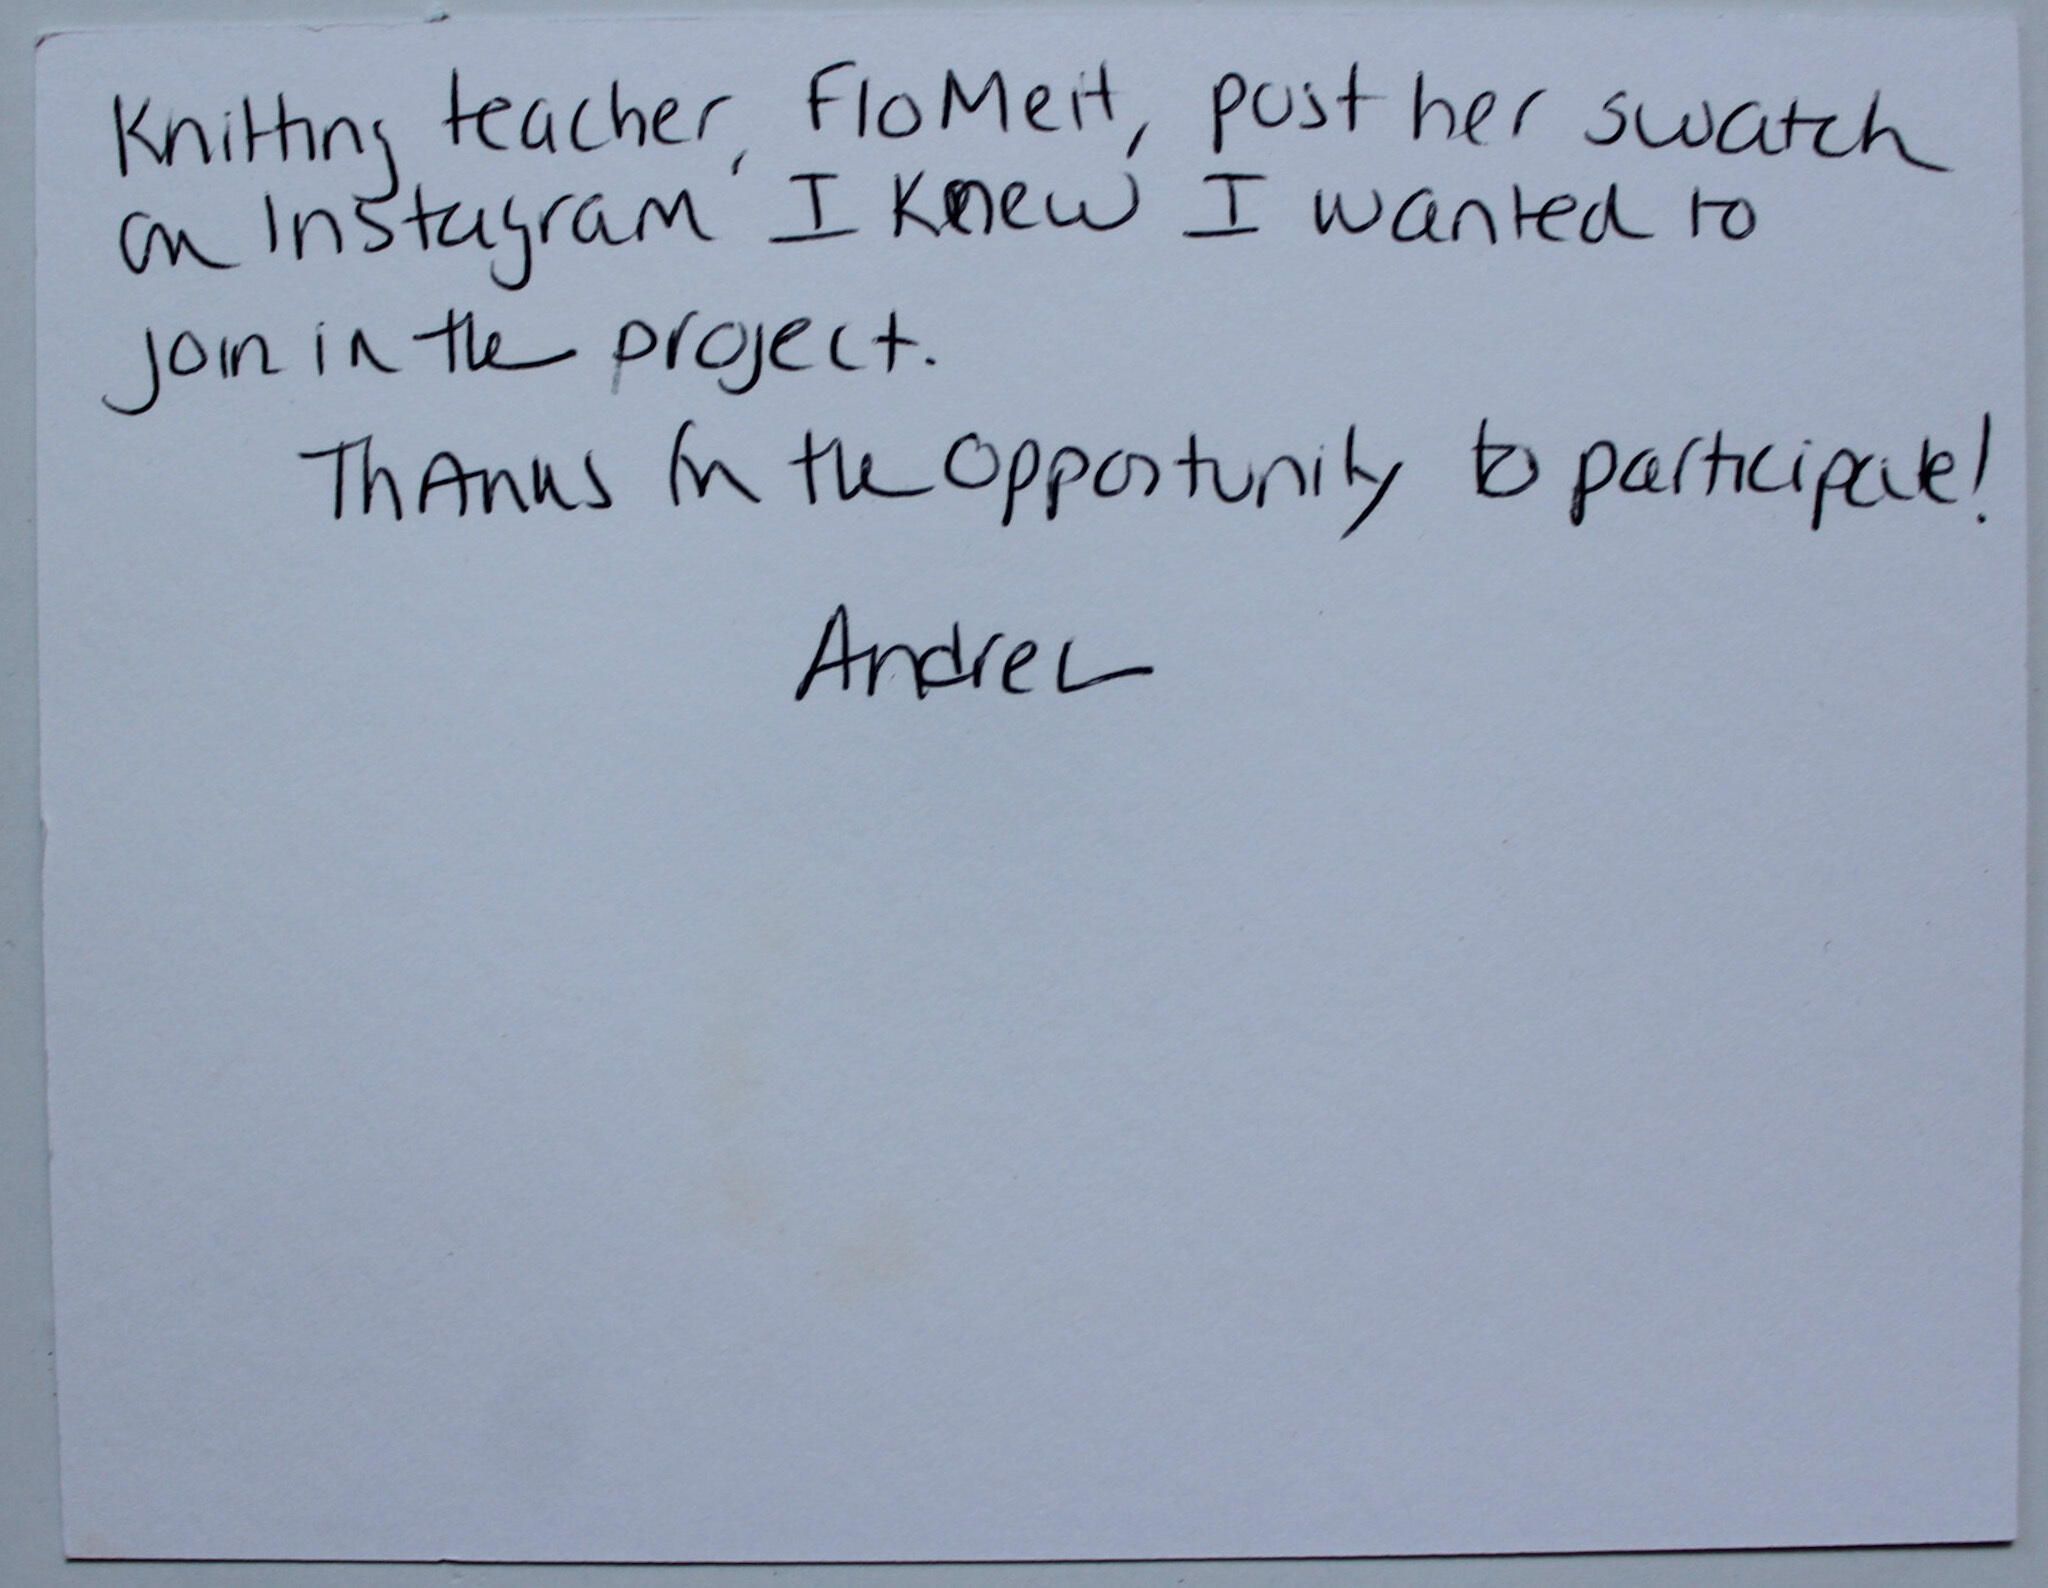 Knitting teacher, Flo Meit, post her swatch
on Instagram I knew I wanted to
join in the project.
Thanks for the opportunity to participate!
Andrea